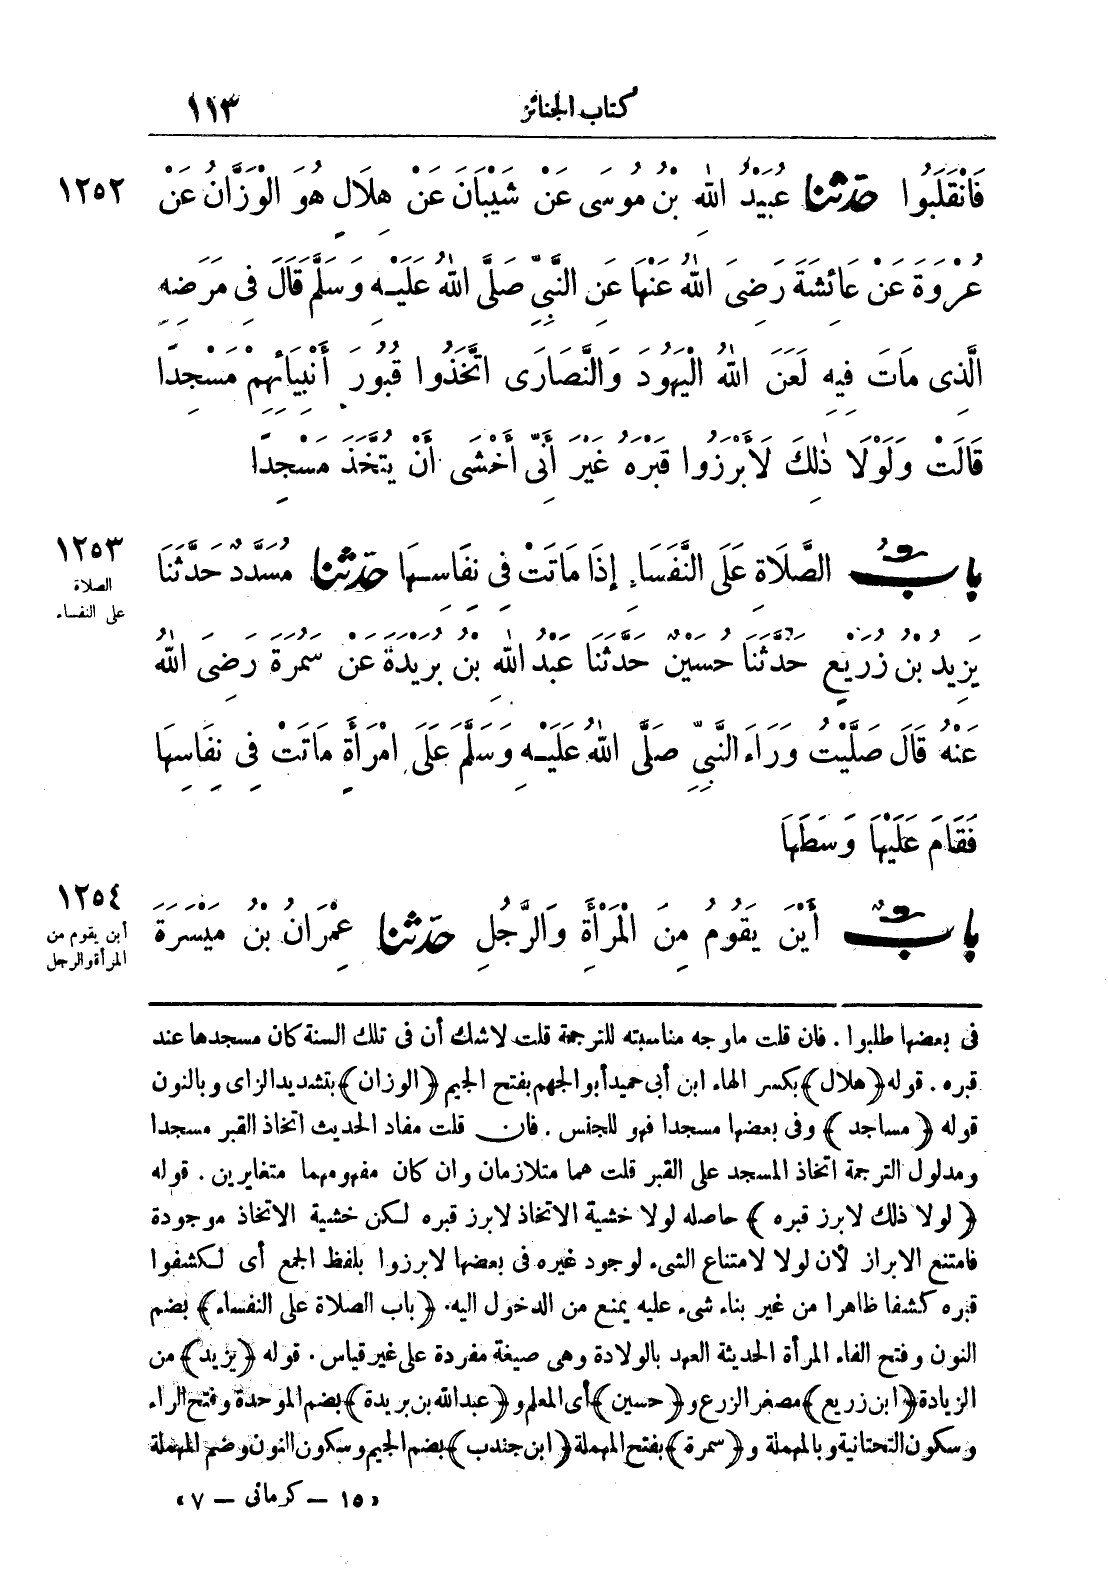 كتاب الجنائز ١١٣
فَانْقَلَبُوا حَدَّثَنَا عُبَيْدُ اللهِ بْنُ مُوسَى عَنْ شَيْبَانَ عَنْ هِلَالٍ هُوَ الْوَزَّانُ عَنْ ١٢٥٢
عُرْوَةَ عَنْ عَائِشَةَ رَضِىَ اللهُ عَنْهَا عَنِ النَّبِىِّ صَلَّى اللهُ عَلَيْهِ وَسَلَّمَ قَالَ فِى مَرَضِهِ
الَّذِى مَاتَ فِيهِ لَعَنَ اللهُ الْيَهُودَ وَالنَّصَارَى اتَّخَذُوا قُبُورَ أَنْبِيَائِهِمْ مَسْجِدًا
قَالَتْ وَلَوْلَا ذٰلِكَ لَأَبْرَزُوا قَبْرَهُ غَيْرَ أَنِّى أَخْشَى أَنْ يُتَّخَذَ مَسْجِدًا
بَابُ الصَّلَاةِ عَلَى النُّفَسَاءِ إِذَا مَاتَتْ فِى نِفَاسِهَا حَدَّثَنَا مُسَدَّدٌ حَدَّثَنَا ١٢٥٣
الصلاة
على النفساء
يَزِيدُ بْنُ زُرَيْعٍ حَدَّثَنَا حُسَيْنٌ حَدَّثَنَا عَبْدُ اللهِ بْنُ بُرَيْدَةَ عَنْ سَمُرَةَ رَضِىَ اللهُ
عَنْهُ قَالَ صَلَّيْتُ وَرَاءَ النَّبِىِّ صَلَّى اللهُ عَلَيْهِ وَسَلَّمَ عَلَى امْرَأَةٍ مَاتَتْ فِى نِفَاسِهَا
فَقَامَ عَلَيْهَا وَسَطَهَا
بَابٌ أَيْنَ يَقُومُ مِنَ الْمَرْأَةِ وَالرَّجُلِ حَدَّثَنَا عِمْرَانُ بْنُ مَيْسَرَةَ ١٢٥٤
أين يقوم من
المرأة والرجل
فى بعضها طلبوا . فان قلت ماوجه مناسبته للترجمة قلت لاشك أن فى تلك السنة كان مسجدها عند
قبره . قوله ﴿هلال﴾ بكسر الهاء ابن أبى حميد أبو الجهم بفتح الجيم ﴿الوزان﴾ بتشديد الزاى وبالنون
قوله ﴿مساجد﴾ وفى بعضها مسجدا فهو للجنس . فان قلت مفاد الحديث اتخاذ القبر مسجدا
ومدلول الترجمة اتخاذ المسجد على القبر قلت هما متلازمان وان كان مفهومهما متغايرين . قوله
﴿لولا ذلك لابرز قبره﴾ حاصله لولا خشية الاتخاذ لابرز قبره لكن خشية الاتخاذ موجودة
فامتنع الابراز لأن لولا لامتناع الشىء لوجود غيره فى بعضها لابرزوا بلفظ الجمع أى لكشفوا
قبره كشفا ظاهرا من غير بناء شىء عليه يمنع من الدخول اليه . ﴿باب الصلاة على النفساء﴾ بضم
النون وفتح الفاء المرأة الحديثة العهد بالولادة وهى صيغة مفردة على غير قياس . قوله ﴿يزيد﴾ من
الزيادة ﴿ابن زريع﴾ مصغر الزرع و﴿حسين﴾ أى المعلم و﴿عبد الله بن بريدة﴾ بضم الموحدة وفتح الراء
وسكون التحتانية وبالمهملة و﴿سمرة﴾ بفتح المهملة ﴿ابن جندب﴾ بضم الجيم وسكون النون وضم المهملة
«١٥ – كرمانى – ٧»